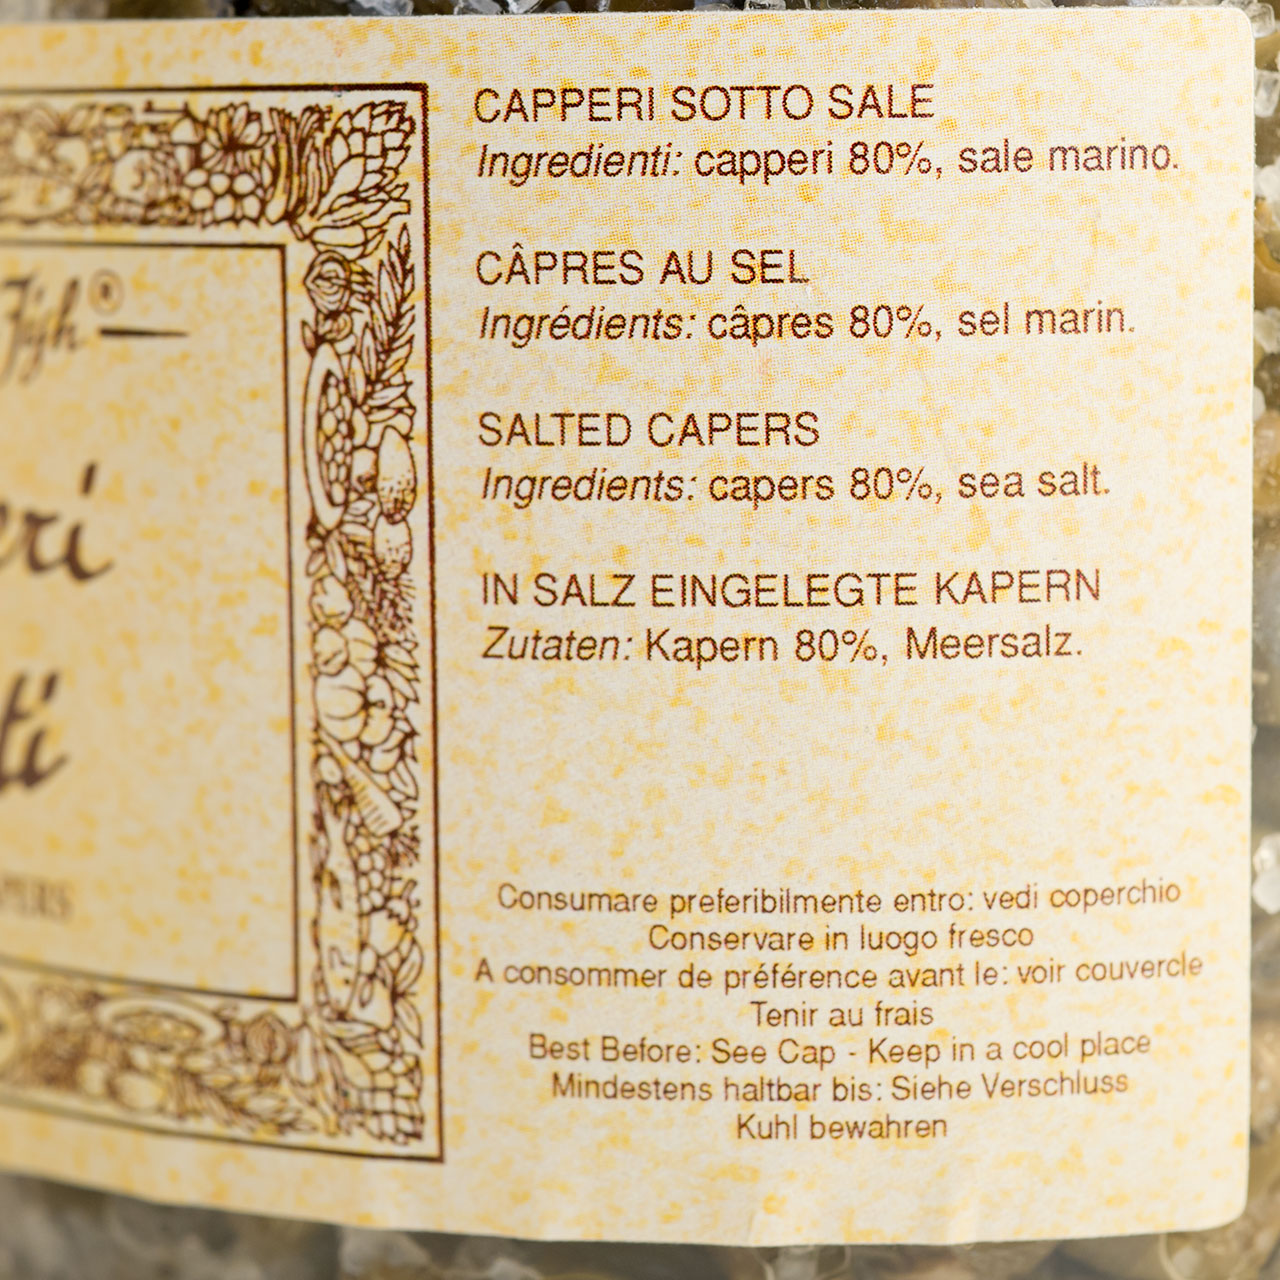 CAPPERI SOTTO SALE
Ingredienti: capperi 80%, sale marino.
CÂPRES AU SEL
Ingrédients: câpres 80%, sel marin.
SALTED CAPERS
Ingredients: capers 80%, sea salt.
IN SALZ EINGELEGTE KAPERN
Zutaten: Kapern 80%, Meersalz.
Consumare preferibilmente entro: vedi coperchio
Conservare in luogo fresco
A consommer de préférence avant le: voir couvercle
Tenir au frais
Best Before: See Cap - Keep in a cool place
Mindestens haltbar bis: Siehe Verschluss
Kuhl bewahren